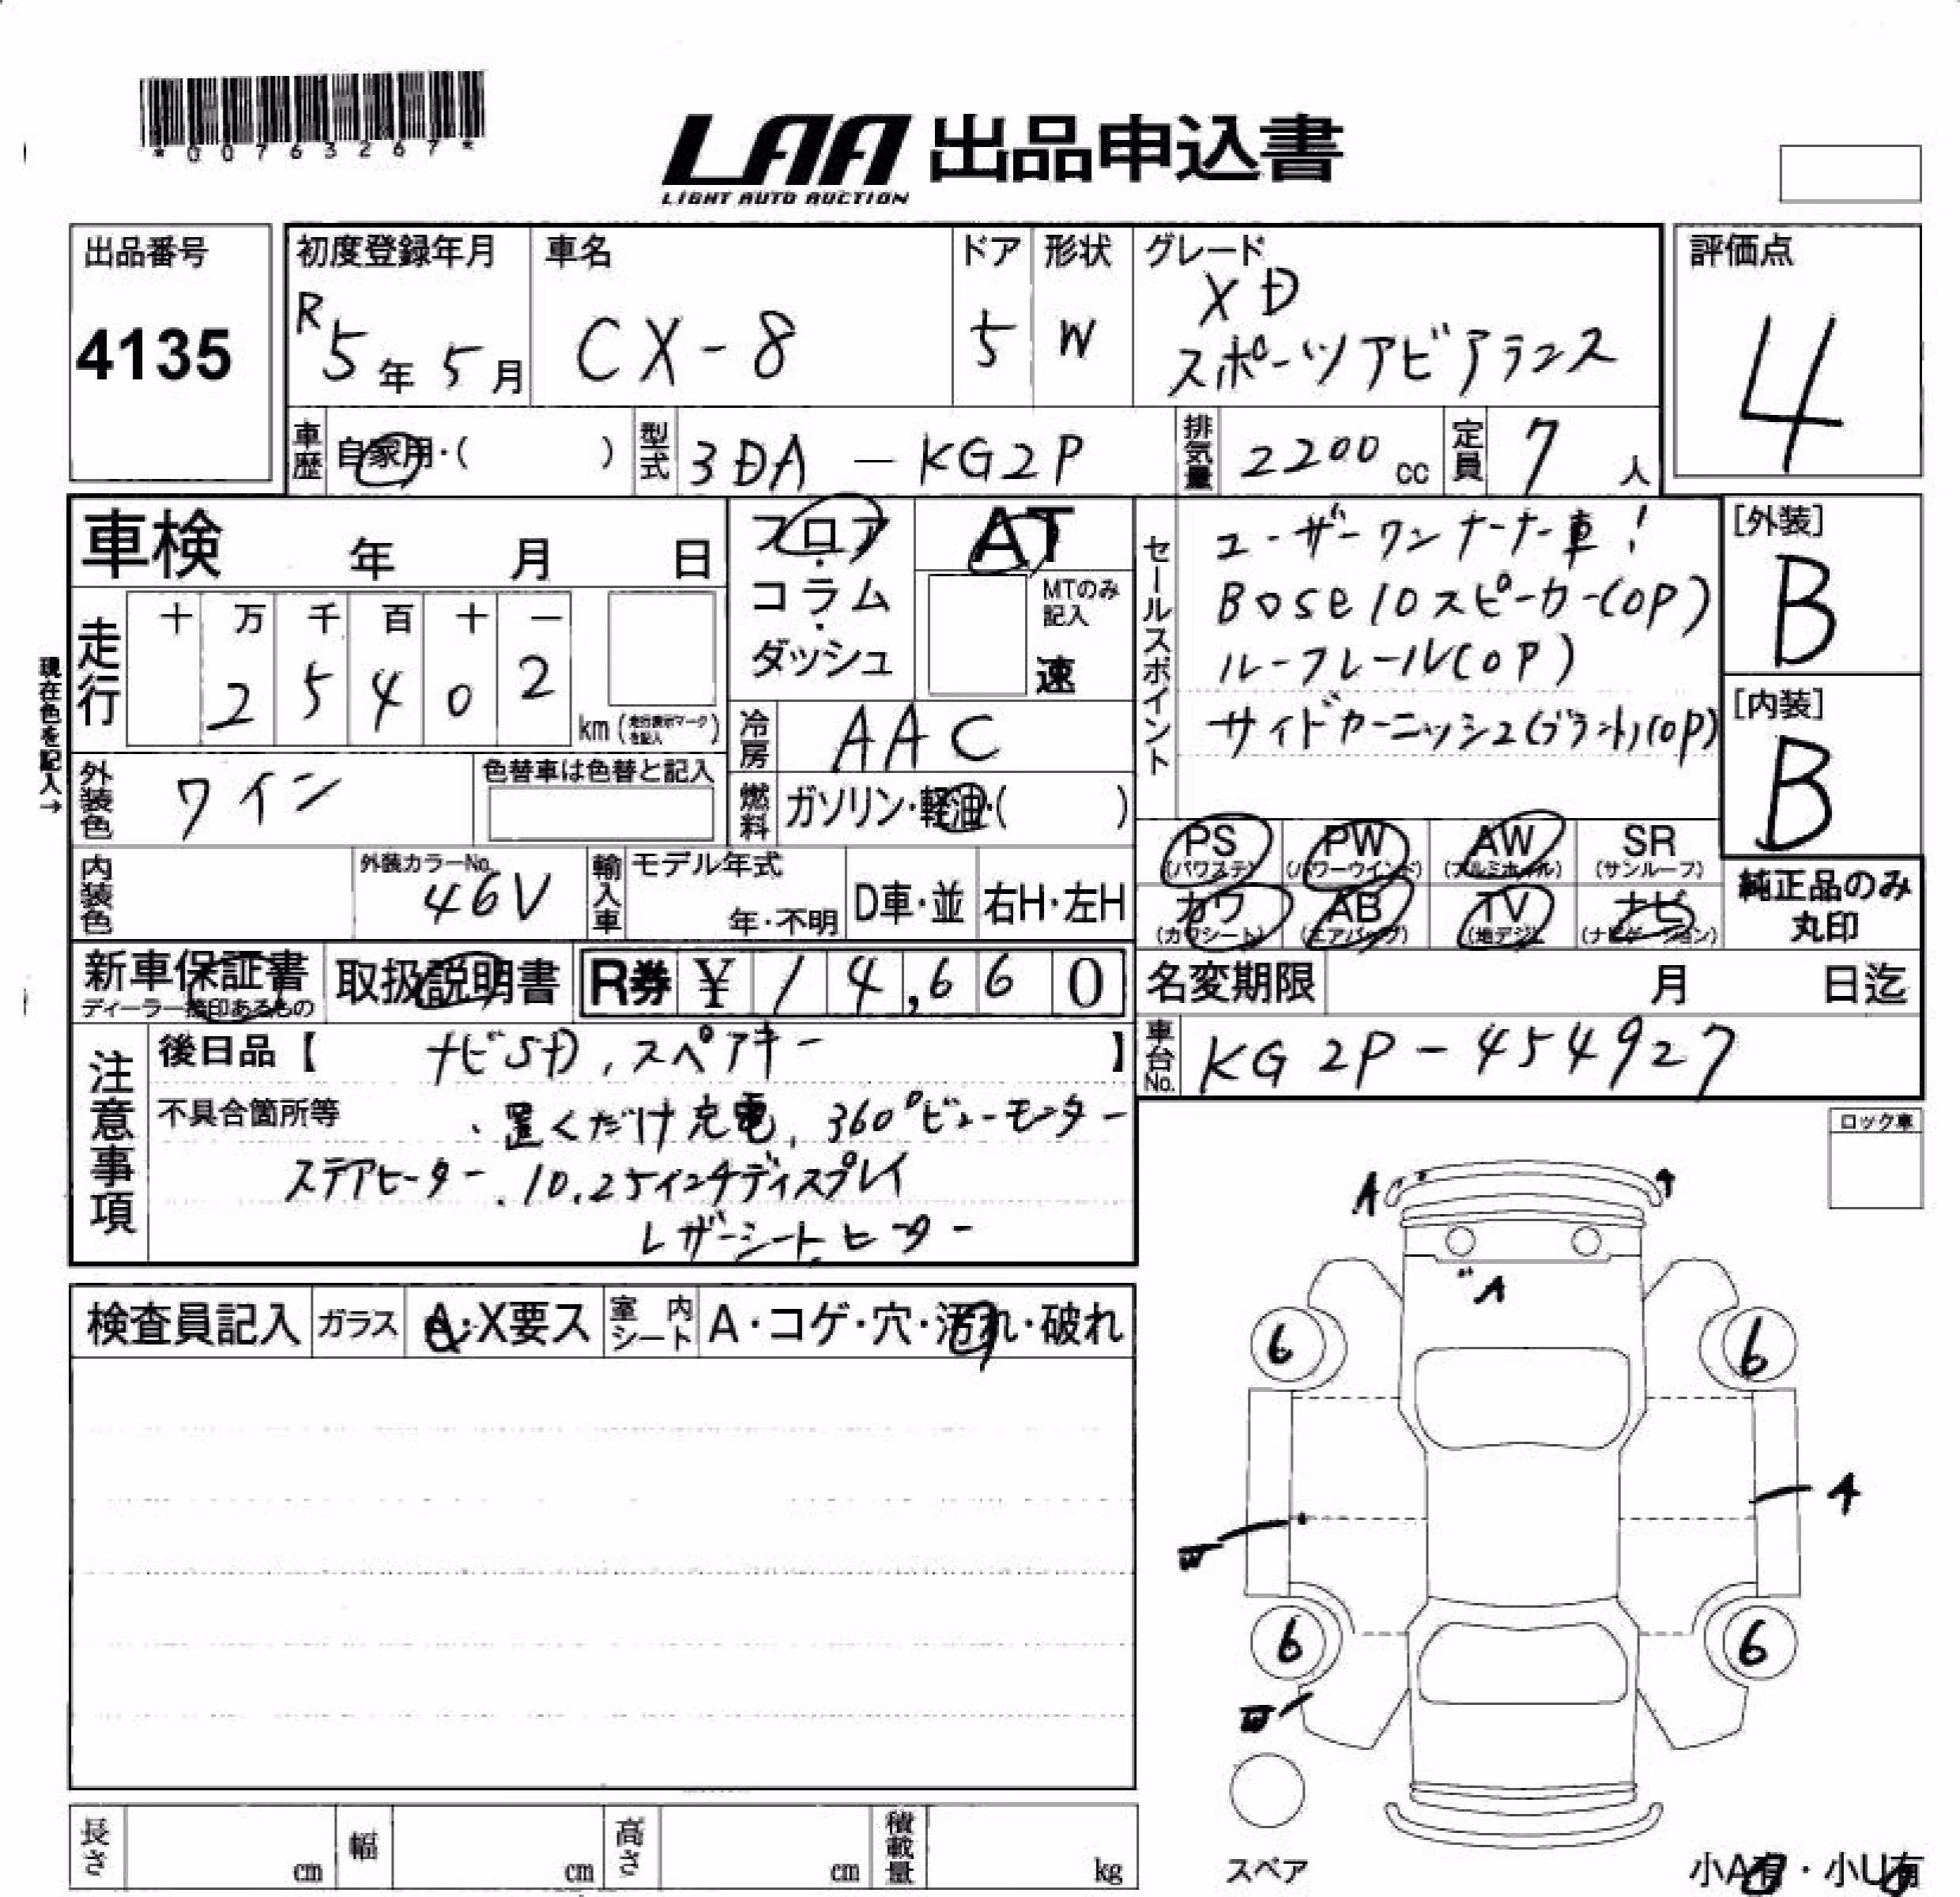 *00763267*
LAA 出品申込書
LIGHT AUTO AUCTION
出品番号
4135
初度登録年月
R5年5月
車名
CX-8
ドア
5
形状
W
グレード
XD
スポーツアピアランス
評価点
4
車歴
自家用・( )
型式
3DA-KG2P
排気量
2200cc
定員
7人
車検 年 月 日
フロア・コラム・ダッシュ
AT
MTのみ記入
速
走行
十 万 千 百 十 一
2 5 4 0 2
km(走行表示マークを記入)
現在色を記入→
外装色
ワイン
色替車は色替と記入
冷房
AAC
燃料
ガソリン・軽油・( )
セールスポイント
ユーザーワンオーナー車!
BOSE10スピーカー(OP)
ルーフレール(OP)
サイドガーニッシュ(ブラック)(OP)
[外装]
B
[内装]
B
内装色
外装カラーNo.
46V
輸入車
モデル年式
年・不明
D車・並
右H・左H
PS
(パワステ)
PW
(パワーウインド)
AW
(アルミホイル)
SR
(サンルーフ)
カワ
(カワシート)
AB
(エアバッグ)
TV
(地デジ)
ナビ
(ナビゲーション)
純正品のみ
丸印
新車保証書
ディーラー捺印あるもの
取扱説明書
R券 ¥14,660
名変期限 月 日迄
車台No.
KG2P-454927
注意事項
後日品【 ナビSD、スペアキー 】
不具合箇所等
・置くだけ充電、360°ビューモニター
ステアヒーター、10.25インチディスプレイ
レザーシート、ヒーター
ロック車
検査員記入
ガラス
A・X要ス
室内シート
A・コゲ・穴・汚れ・破れ
A
A
6
6
A
W
6
6
W
スペア
長さ cm
幅 cm
高さ cm
積載量 kg
小A有・小U有